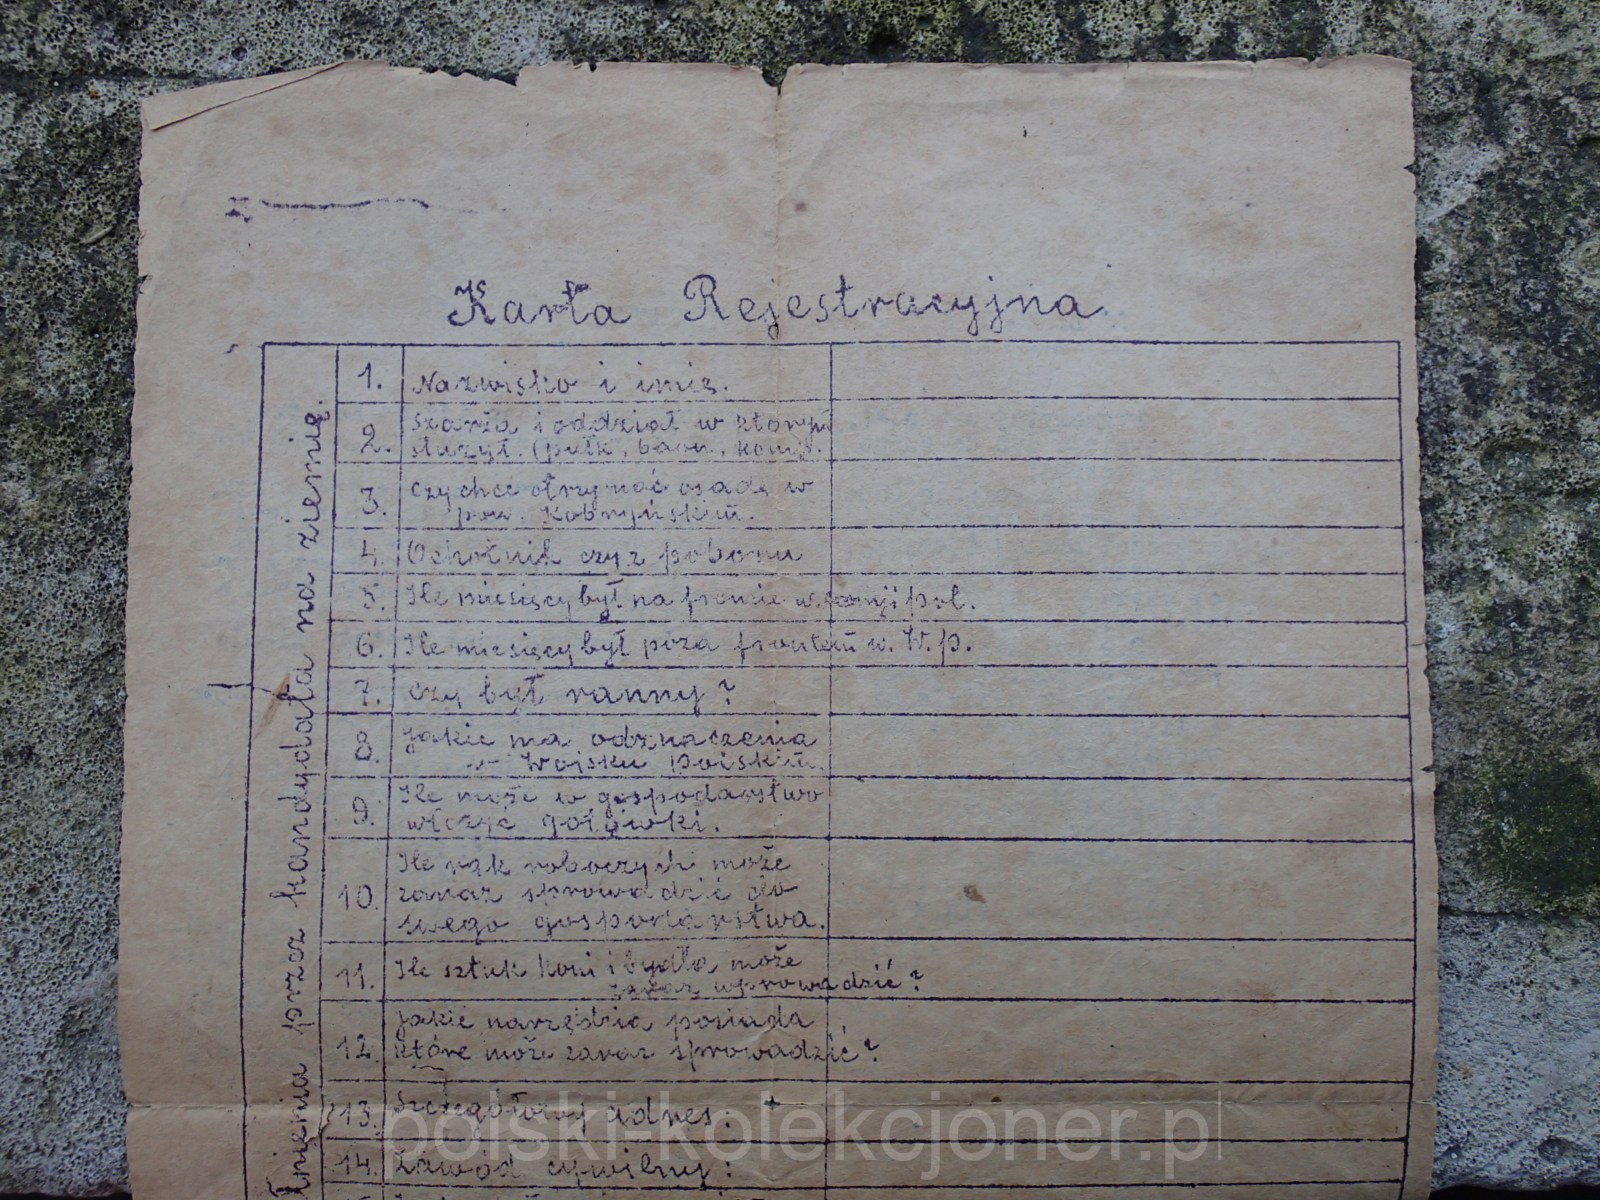 Karta Rejestracyjna
łnienia przez kandydata na ziemię.
1. Nazwisko i imię.
2. Szarża i oddział w którym
służył. (pułk, baon, komp.
3. Czy chce otrzymać osadę w
pow. Kobryńskim.
4. Ochotnik czy z poboru
5. Ile miesięcy był na froncie w armji pol.
6. Ile miesięcy był poza frontem w. W. p.
7. Czy był ranny?
8. Jakie ma odznaczenia
w Wojsku polskim.
9. Ile może w gospodarstwo
włożyć gotówki.
10. Ile rąk roboczych może
zaraz sprowadzić do
swego gospodarstwa.
11. Ile sztuk koni i bydła może
zaraz wprowadzić?
12. Jakie narzędzia posiada
które może zaraz sprowadzić?
13. Szczegółowy adres:
14. Zawód cywilny:
polski-kolekcjoner.pl